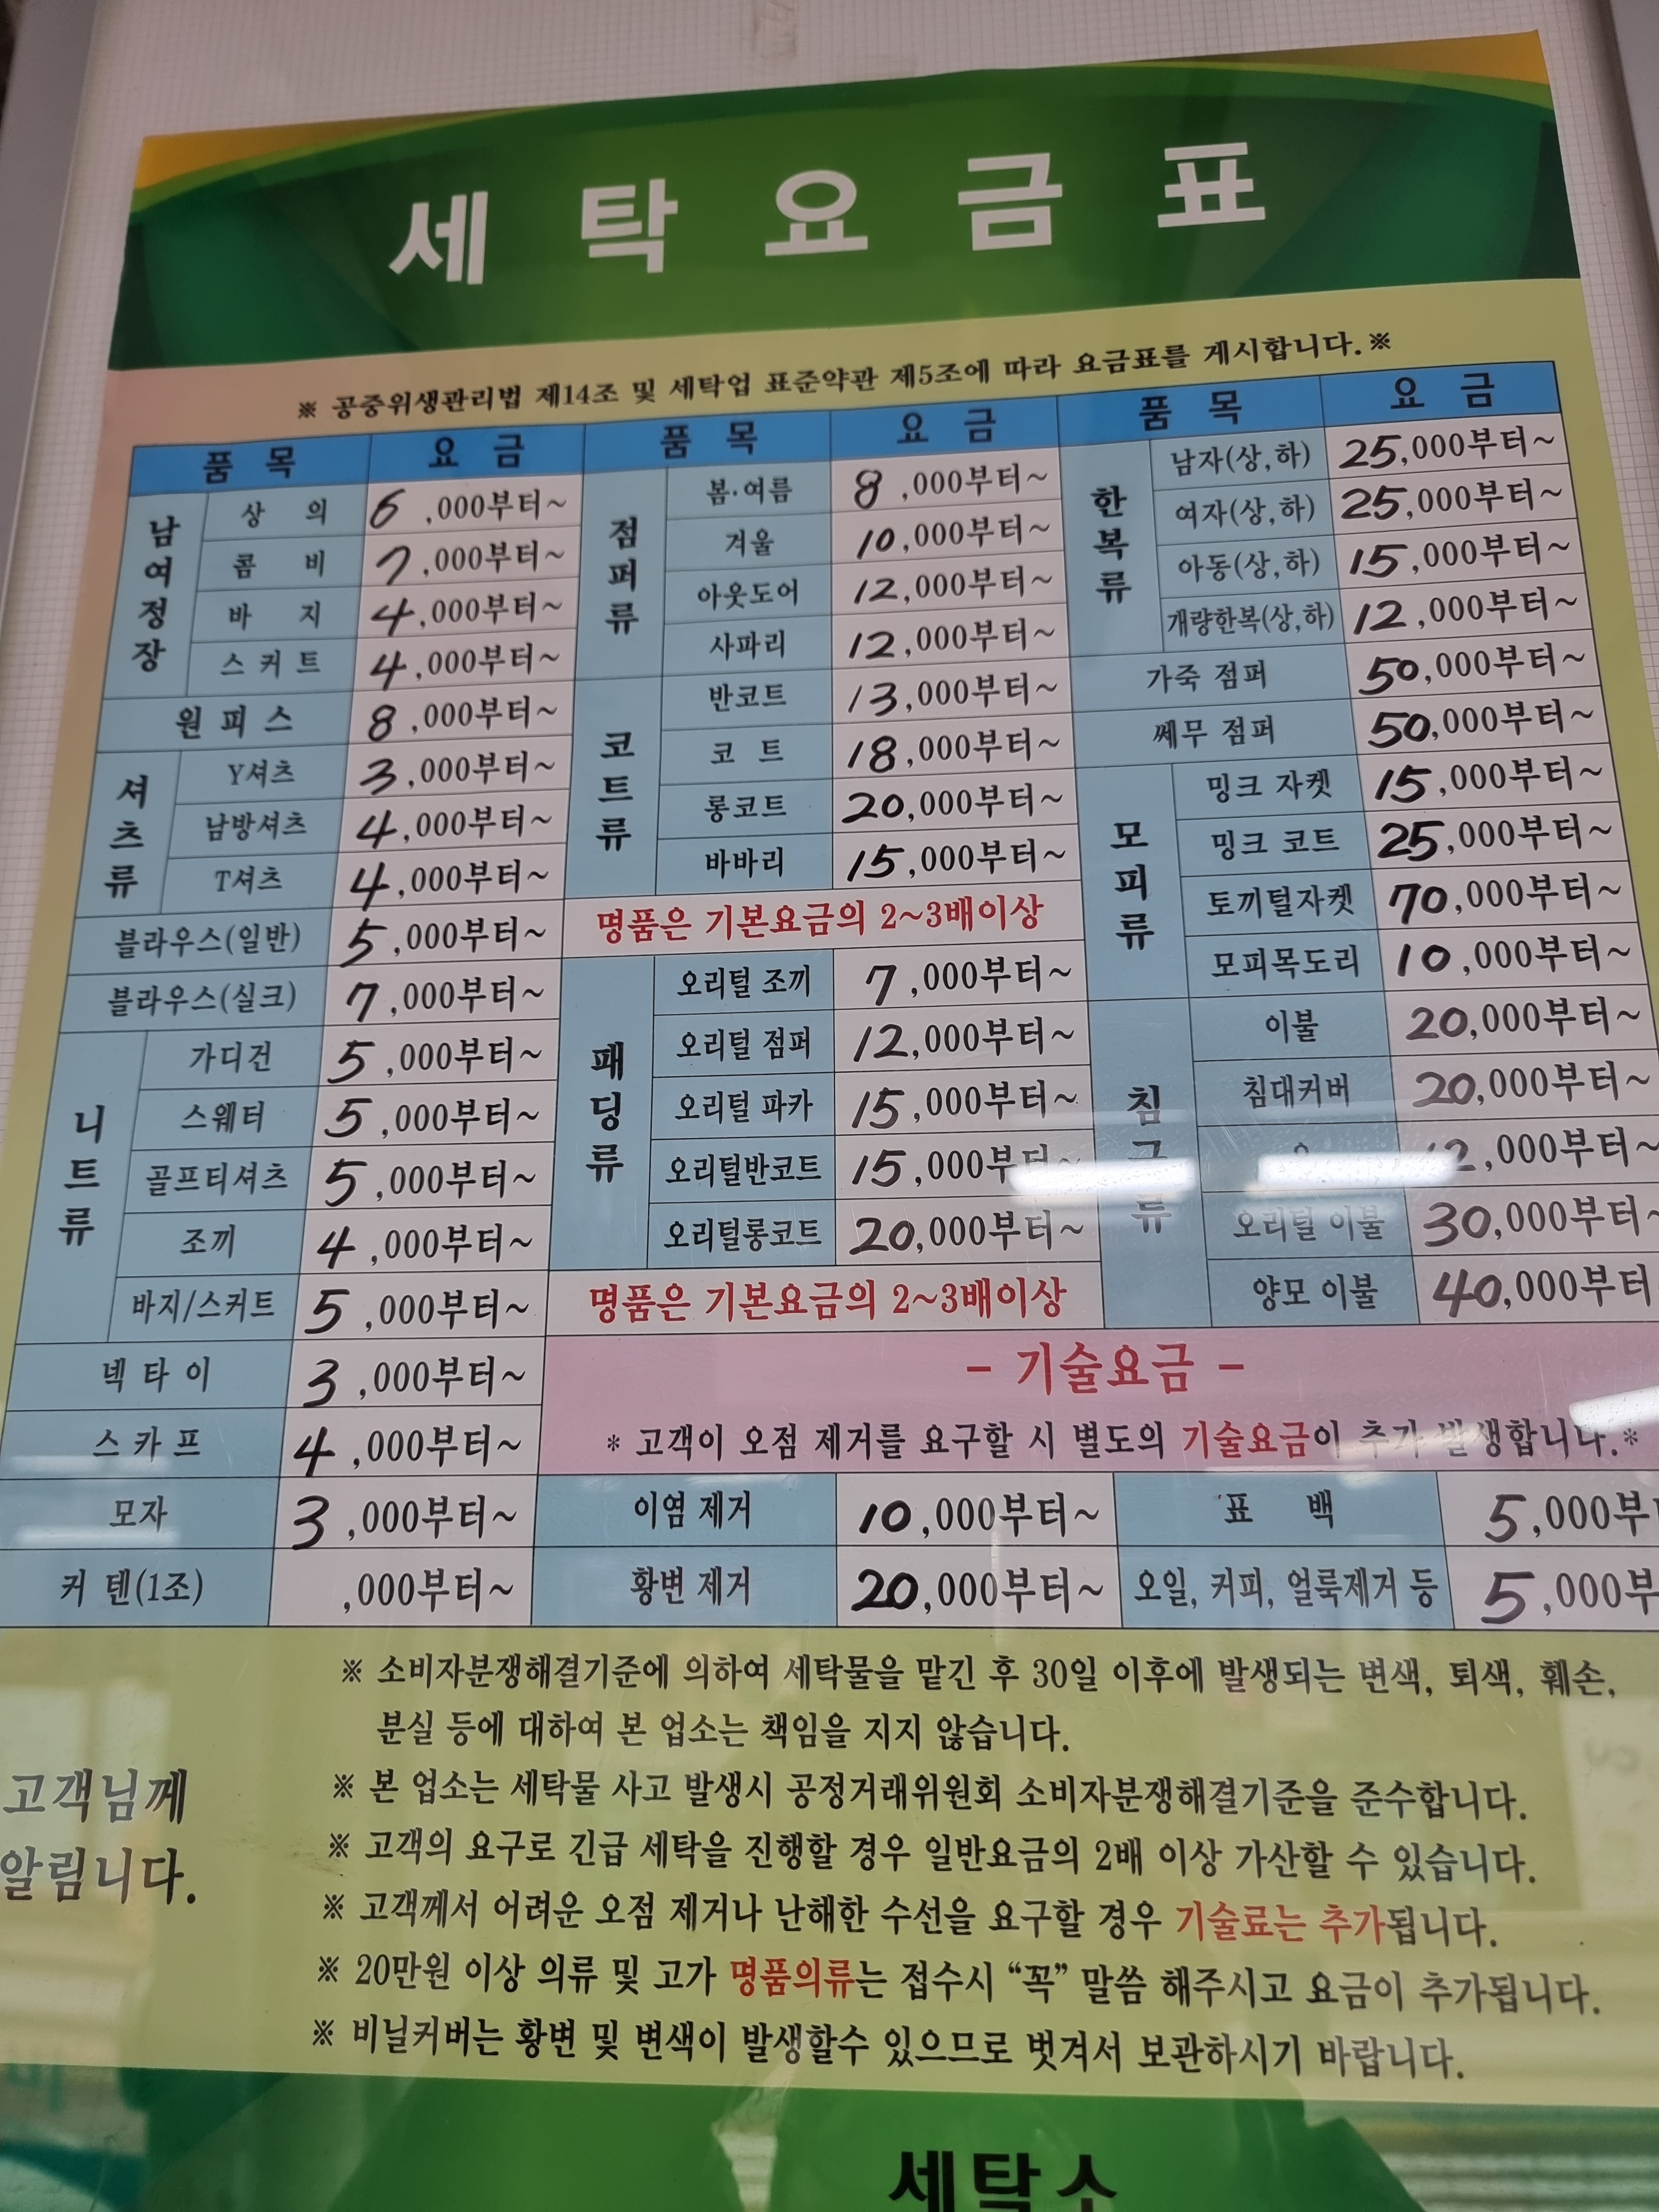 세탁요금표
※ 공중위생관리법 제14조 및 세탁업 표준약관 제5조에 따라 요금표를 게시합니다.※
품 목 요 금
남여정장
상 의 6,000부터~
콤 비 7,000부터~
바 지 4,000부터~
스커트 4,000부터~
원피스 8,000부터~
셔츠류
Y셔츠 3,000부터~
남방셔츠 4,000부터~
T셔츠 4,000부터~
블라우스(일반) 5,000부터~
블라우스(실크) 7,000부터~
니트류
가디건 5,000부터~
스웨터 5,000부터~
골프티셔츠 5,000부터~
조끼 4,000부터~
바지/스커트 5,000부터~
넥타이 3,000부터~
스카프 4,000부터~
모자 3,000부터~
커텐(1조) ,000부터~
품 목 요 금
점퍼류
봄·여름 8,000부터~
겨울 10,000부터~
아웃도어 12,000부터~
사파리 12,000부터~
코트류
반코트 13,000부터~
코 트 18,000부터~
롱코트 20,000부터~
바바리 15,000부터~
명품은 기본요금의 2~3배이상
패딩류
오리털 조끼 7,000부터~
오리털 점퍼 12,000부터~
오리털 파카 15,000부터~
오리털반코트 15,000부터~
오리털롱코트 20,000부터~
명품은 기본요금의 2~3배이상
품 목 요 금
한복류
남자(상,하) 25,000부터~
여자(상,하) 25,000부터~
아동(상,하) 15,000부터~
개량한복(상,하) 12,000부터~
가죽 점퍼 50,000부터~
쎄무 점퍼 50,000부터~
모피류
밍크 자켓 15,000부터~
밍크 코트 25,000부터~
토끼털자켓 70,000부터~
모피목도리 10,000부터~
침구류
이불 20,000부터~
침대커버 20,000부터~
12,000부터~
오리털 이불 30,000부터~
양모 이불 40,000부터
- 기술요금 -
* 고객이 오점 제거를 요구할 시 별도의 기술요금이 추가 발생합니다.*
이염 제거 10,000부터~ 표 백 5,000부
황변 제거 20,000부터~ 오일, 커피, 얼룩제거 등 5,000부
고객님께
알림니다.
※ 소비자분쟁해결기준에 의하여 세탁물을 맡긴 후 30일 이후에 발생되는 변색, 퇴색, 훼손,
분실 등에 대하여 본 업소는 책임을 지지 않습니다.
※ 본 업소는 세탁물 사고 발생시 공정거래위원회 소비자분쟁해결기준을 준수합니다.
※ 고객의 요구로 긴급 세탁을 진행할 경우 일반요금의 2배 이상 가산할 수 있습니다.
※ 고객께서 어려운 오점 제거나 난해한 수선을 요구할 경우 기술료는 추가됩니다.
※ 20만원 이상 의류 및 고가 명품의류는 접수시 “꼭” 말씀 해주시고 요금이 추가됩니다.
※ 비닐커버는 황변 및 변색이 발생할수 있으므로 벗겨서 보관하시기 바랍니다.
세탁소